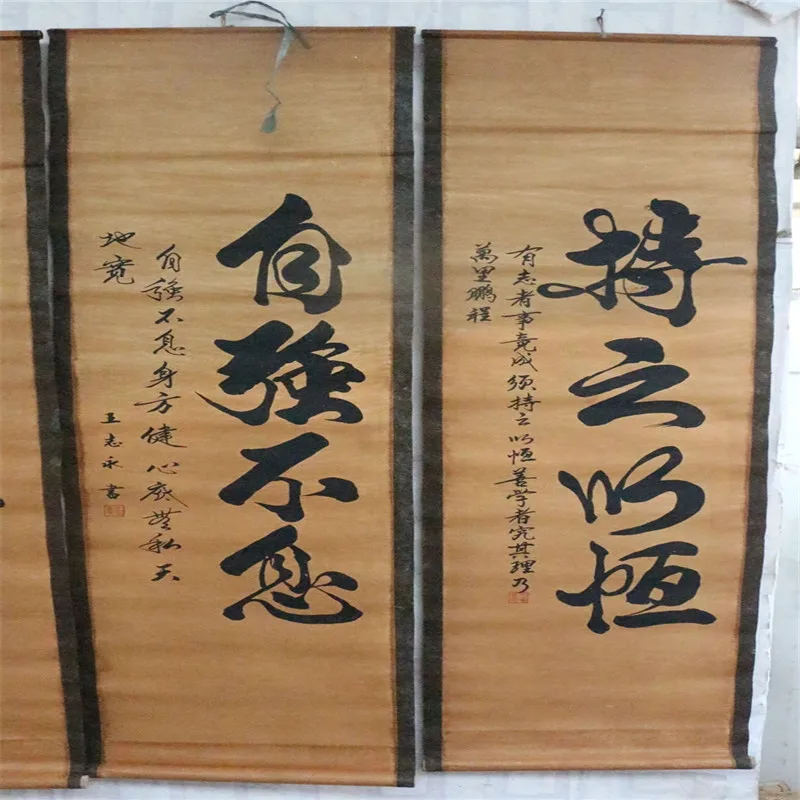 持之以恒
有志者事竟成须持之以恒善学者究其理乃
萬里鹏程
自強不息
自強不息身方健心底無私天
地寬
王志永書